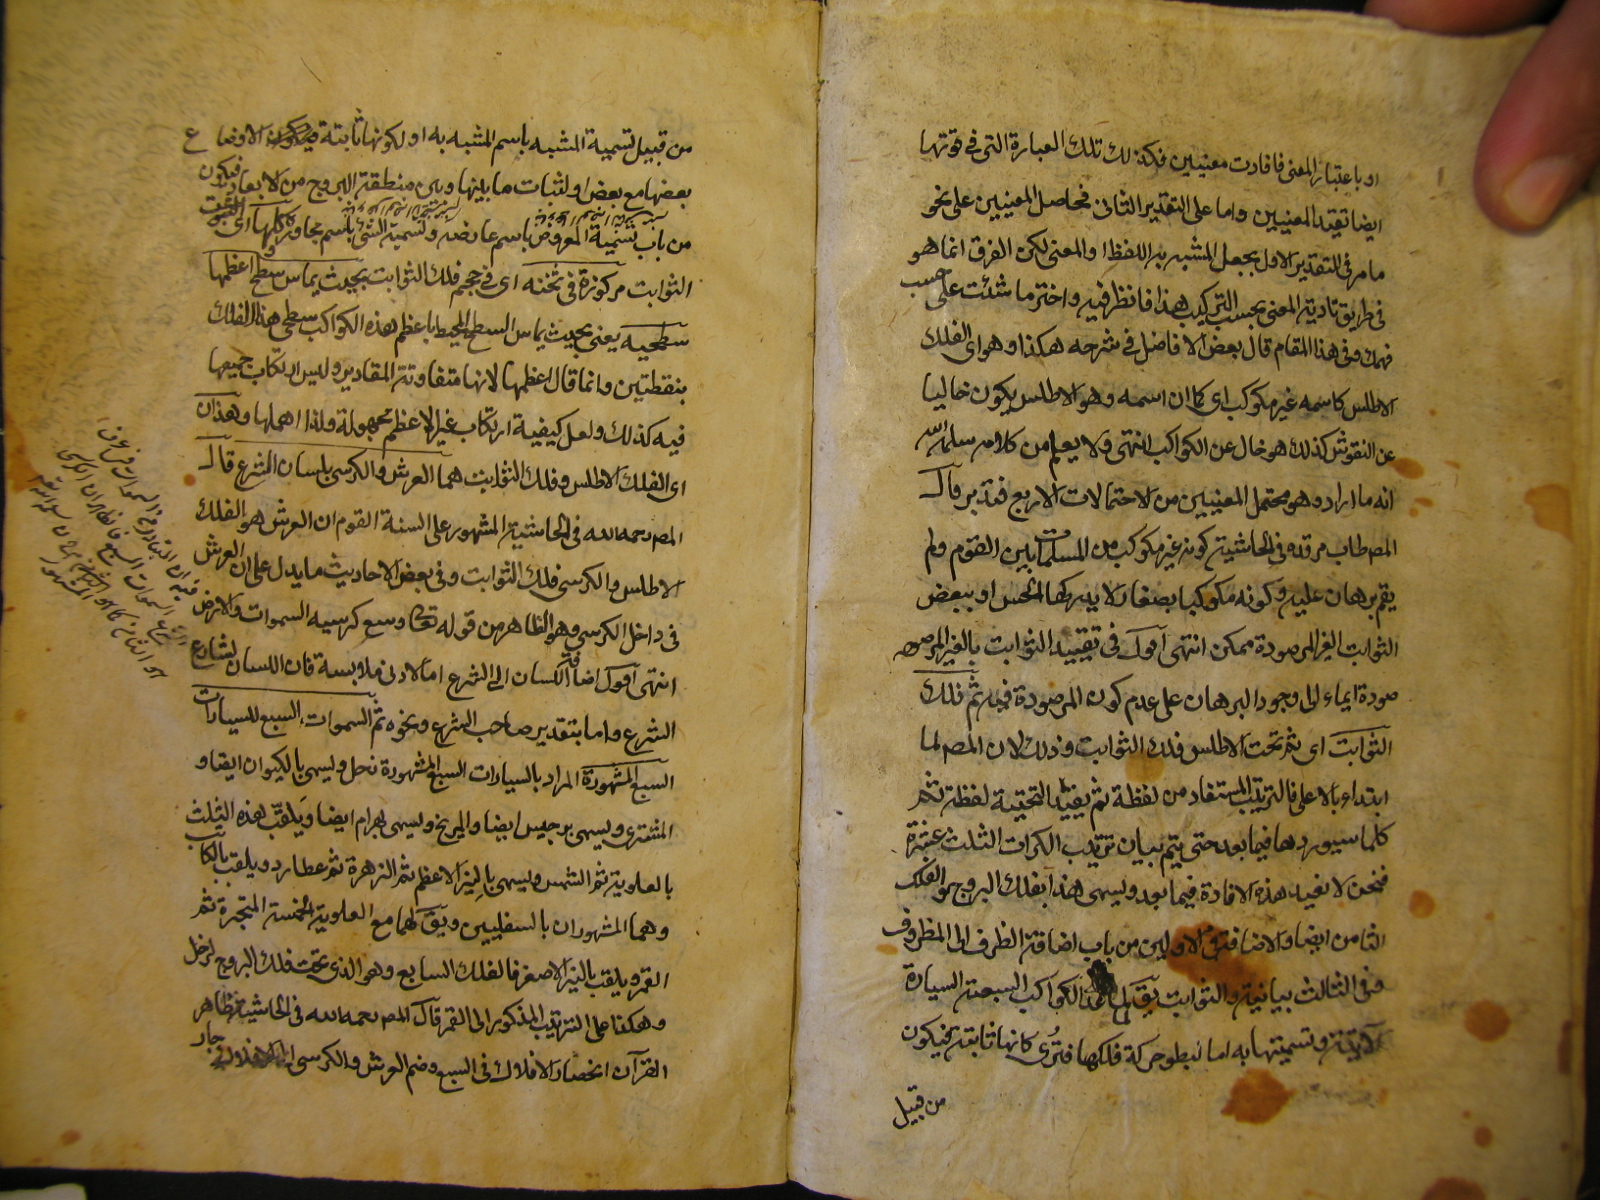 او باعتبار المعنى فافادت معنيين فكذلك تلك العبارة التى فى قوتها
ايضا تفيد المعنيين واما على التقدير الثانى فحاصل المعنيين على نحو
ما مر فى التقدير الاول بجعل المشبه به اللفظ او المعنى لكن الفرق انما هو
فى طريق تادية المعنى بحسب التركيب هذا فانظر فيه واختر ما شئت على حسب
فهمك وفى هذا المقام قال بعض الافاضل فى شرحه هكذا وهو اى الفلك
الاطلس كاسمه غير مكوكب اى كما ان اسمه وهو الاطلس يكون خاليا
عن النقوش كذلك هو خال عن الكواكب انتهى ولا يعلم من كلامه سلمه الله
انه ما اراده وهو محتمل المعنيين من الاحتمالات الاربع فتدبر قال
المص طاب مرقده فى الحاشية كونه غير مكوكب من المسلمات بين القوم ولم
يقم برهان عليه وكونه مكوكبا بصغار لا يدركها الحس او ببعض
الثوابت الغير المرصودة ممكن انتهى اقول فى تقييد الثوابت بالغير المرصو
صودة ايماء الى وجود البرهان على عدم كون المرصودة فيه ثم فلك
الثوابت اى ثم تحت الاطلس فلك الثوابت وذلك لان المص لما
ابتداء بالاعلى فالترتيب المستفاد من لفظة ثم يفيد التحتية لفظة ثم
كلما سيوردها فيما بعد حتى يتم بيان ترتيب الكرات الثلث عشرة
فنحن لا نعيد هذه الافادة فيما بعد ويسمى هذا بفلك البروج والفلك
الثامن ايضا والاضافة فى الاولين من باب اضافة الظرف الى المظروف
وفى الثالث بيانية والثوابت يقال لما عدا الكواكب السبعة السيارة
الاتية وتسميتها به اما لبطو حركة فلكها فترى كانها ثابتة فيكون
من قبيل
من قبيل تسمية المشبه باسم المشبه به او لكونها ثابتة الاوضاع
بعضها مع بعض او لثبات ما بينها وبين منطقة البروج من الابعاد فيكون
من باب تسمية المعروض باسم عارضه وتسمية الشئ باسم مجاوره وكلها اى
الثوابت مركوزة فى ثخنه اى فى حجم فلك الثوابت بحيث يماس سطح اعظمها
سطحيه يعنى بحيث يماس السطح المحيط باعظم هذه الكواكب سطحى هذا الفلك
بنقطتين وانما قال اعظمها لانها متفاوتة المقادير وليس ارتكاب جميعها
فيه كذلك ولعل كيفية ارتكاب غير الاعظم مجهولة ولذا اهملها وهذان
اى الفلك الاطلس وفلك الثوابت هما العرش والكرسى بلسان الشرع قال
المص رحمه الله فى الحاشية المشهور على السنة القوم ان العرش هو الفلك
الاطلس والكرسى فلك الثوابت وفى بعض الاحاديث ما يدل على ان العرش
فى داخل الكرسى وهو الظاهر من قوله تعالى وسع كرسيه السموات والارض
انتهى اقول اضافة اللسان الى الشرع اما لادنى ملابسة فان اللسان لشارع
الشرع واما بتقدير صاحب الشرع ونحوه ثم السموات السبع للسيارات
السبع المشهورة المراد بالسيارات السبع المشهورة زحل ويسمى بالكيوان ايضا و
المشترى ويسمى برجيس ايضا والمريخ ويسمى بهرام ايضا ويلقب هذه الثلث
بالعلوية ثم الشمس ويسمى بالنير الاعظم ثم الزهرة ثم عطارد ويلقب بالكاتب
وهما المشهوران بالسفليين ويقال لهما مع العلوية الخمسة المتحيرة ثم
القمر ويلقب بالنير الاصغر فالفلك السابع وهو الذى تحت فلك البروج لزحل
وهكذا على الترتيب المذكور الى القمر قال المص رحمه الله فى الحاشية ظاهر
القرآن انحصار الافلاك فى السبع وضم العرش والكرسى جار